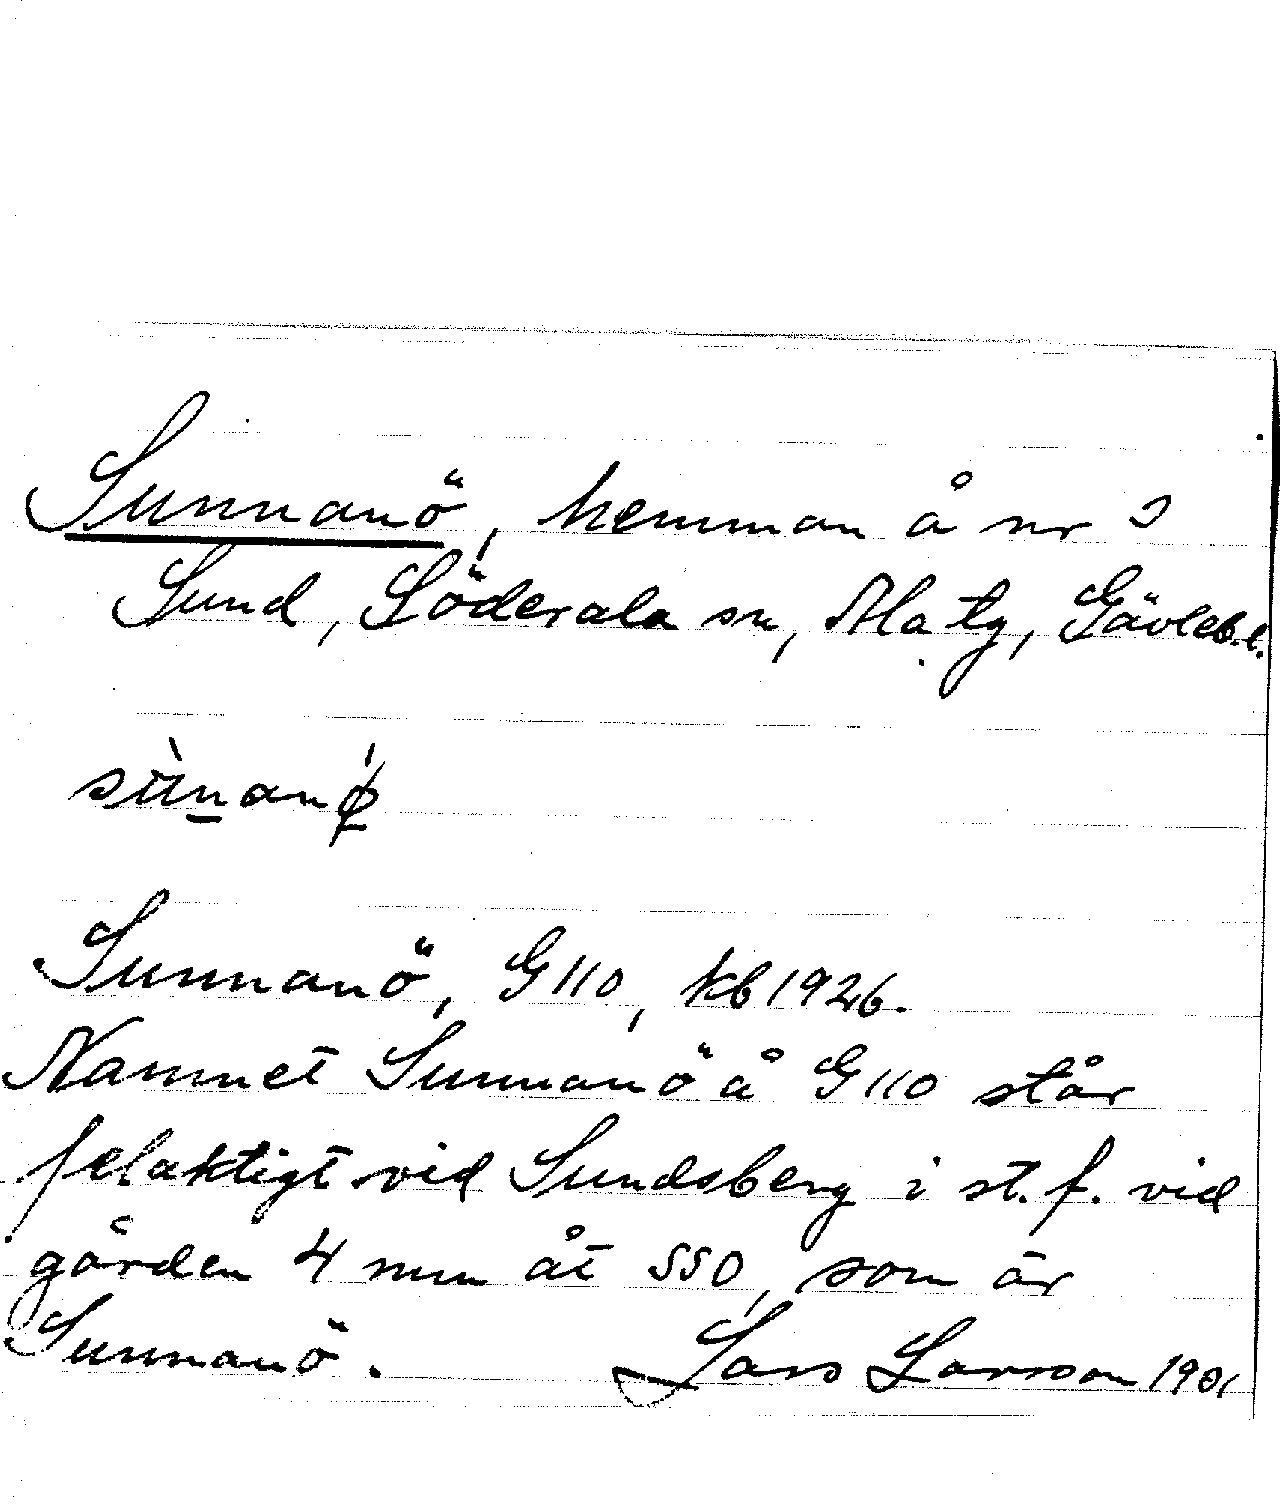 Sunnanö, hemman å nr
Sund, Söderala sn, Ala tg, Gävleb.l.
Sunnanö, G 110, kb 1926.
Namnet Sunnanö å G 110 står
felaktigt vid Sundsberg i st. f. vid
gården 4 mm åt SSO, som är
Sunnanö. Lars Larsson